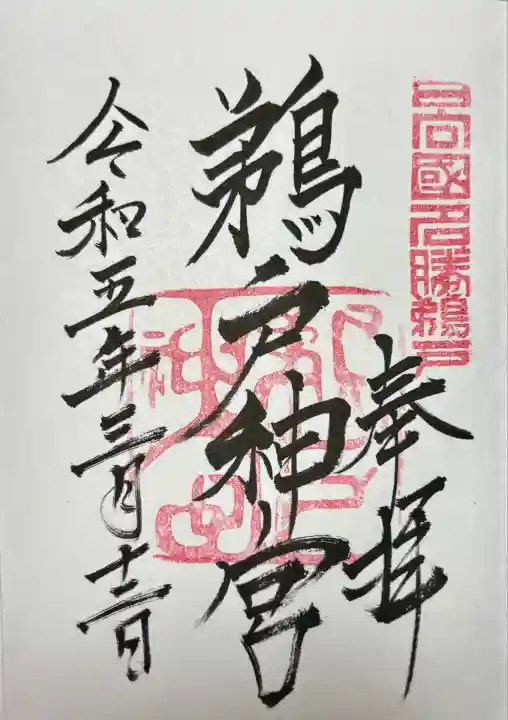 日向國名勝鵜戸
奉拝
鵜戸神宮
令和五年三月十三日